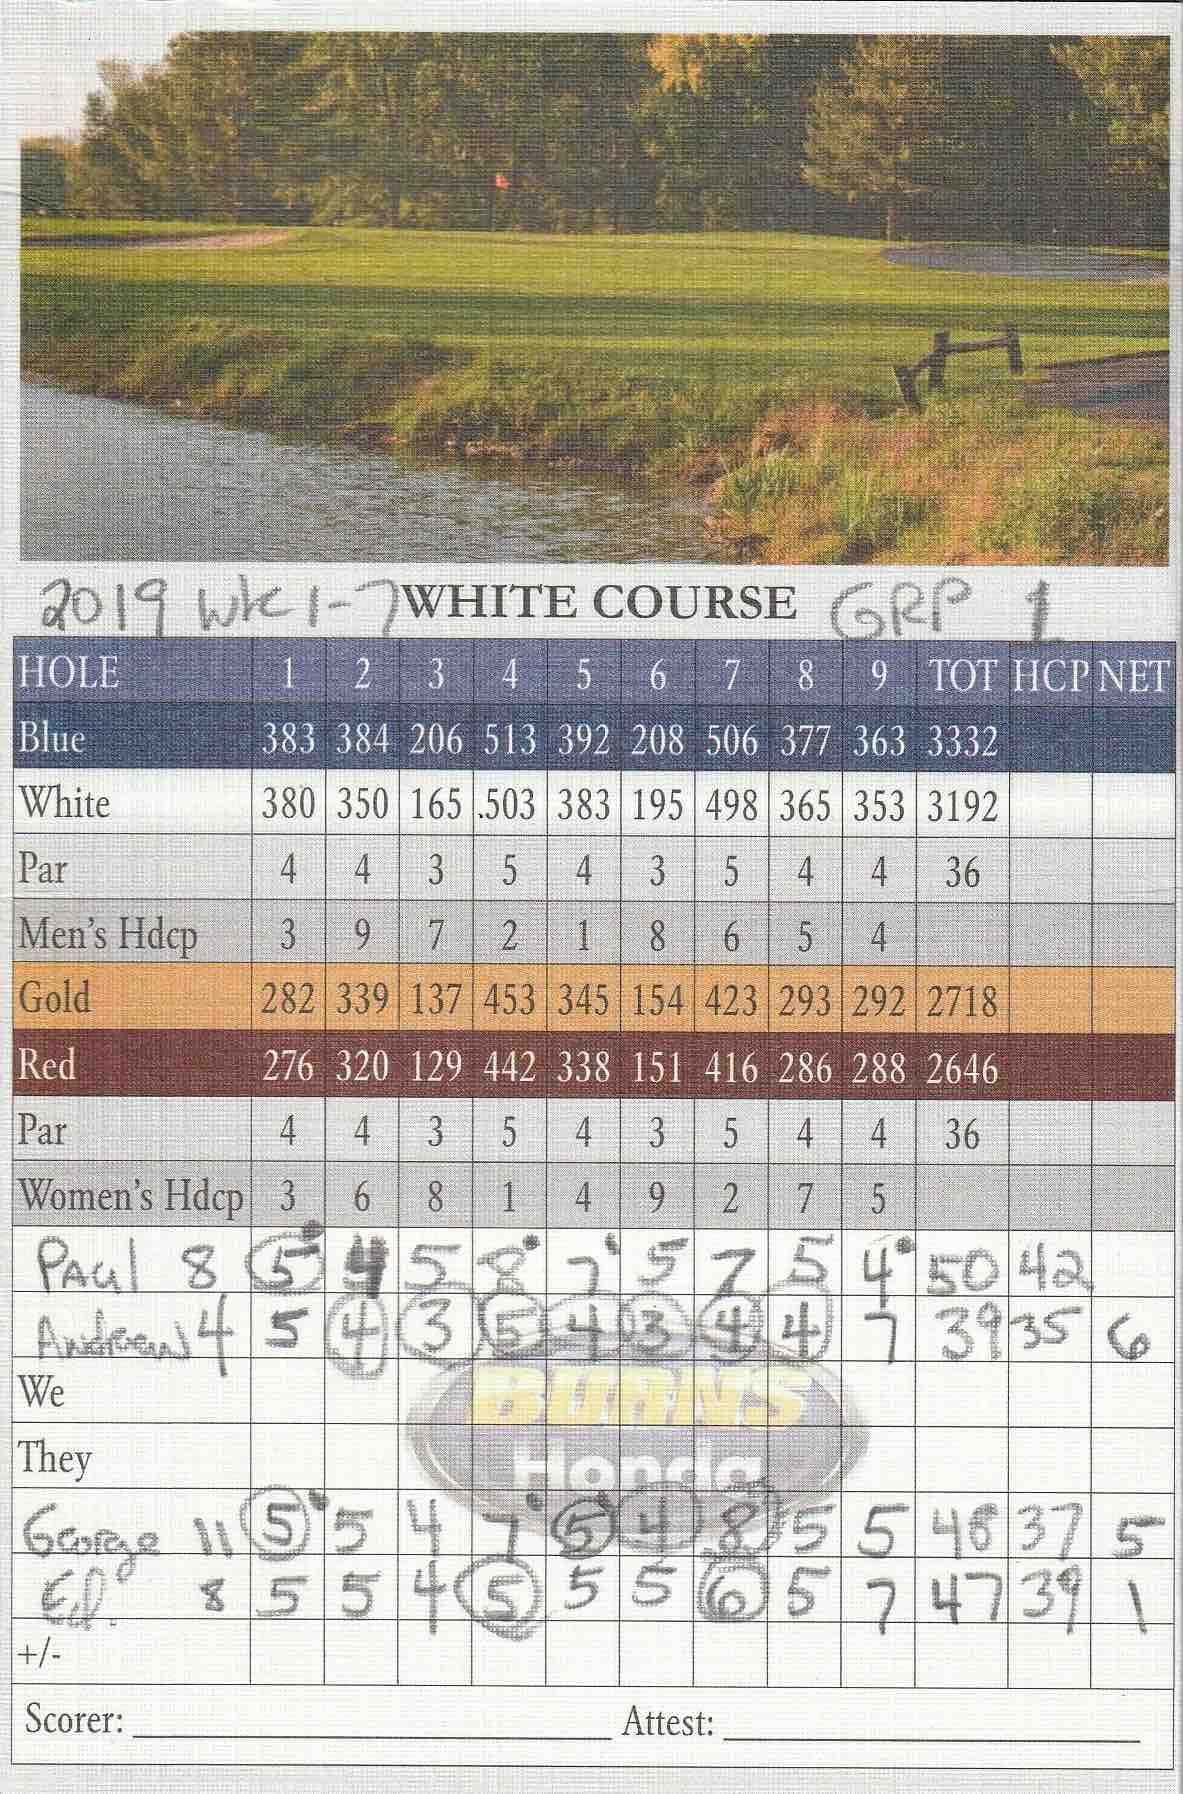 2019 WK 1-7 WHITE COURSE GRP 1
HOLE 1 2 3 4 5 6 7 8 9 TOT HCP NET
Blue 383 384 206 513 392 208 506 377 363 3332
White 380 350 165 .503 383 195 498 365 353 3192
Par 4 4 3 5 4 3 5 4 4 36
Men's Hdcp 3 9 7 2 1 8 6 5 4
Gold 282 339 137 453 345 154 423 293 292 2718
Red 276 320 129 442 338 151 416 286 288 2646
Par 4 4 3 5 4 3 5 4 4 36
Women's Hdcp 3 6 8 1 4 9 2 7 5
PAUL 8 5 4 5 8 7 5 7 5 4 50 42
Andrew 4 5 4 3 5 4 3 4 4 7 39 35 6
We
BURNS
They
Honda
George 11 5 5 4 7 5 4 8 5 5 48 37 5
Ed. 8 5 5 4 5 5 5 6 5 7 47 39 1
+/-
Scorer: Attest: